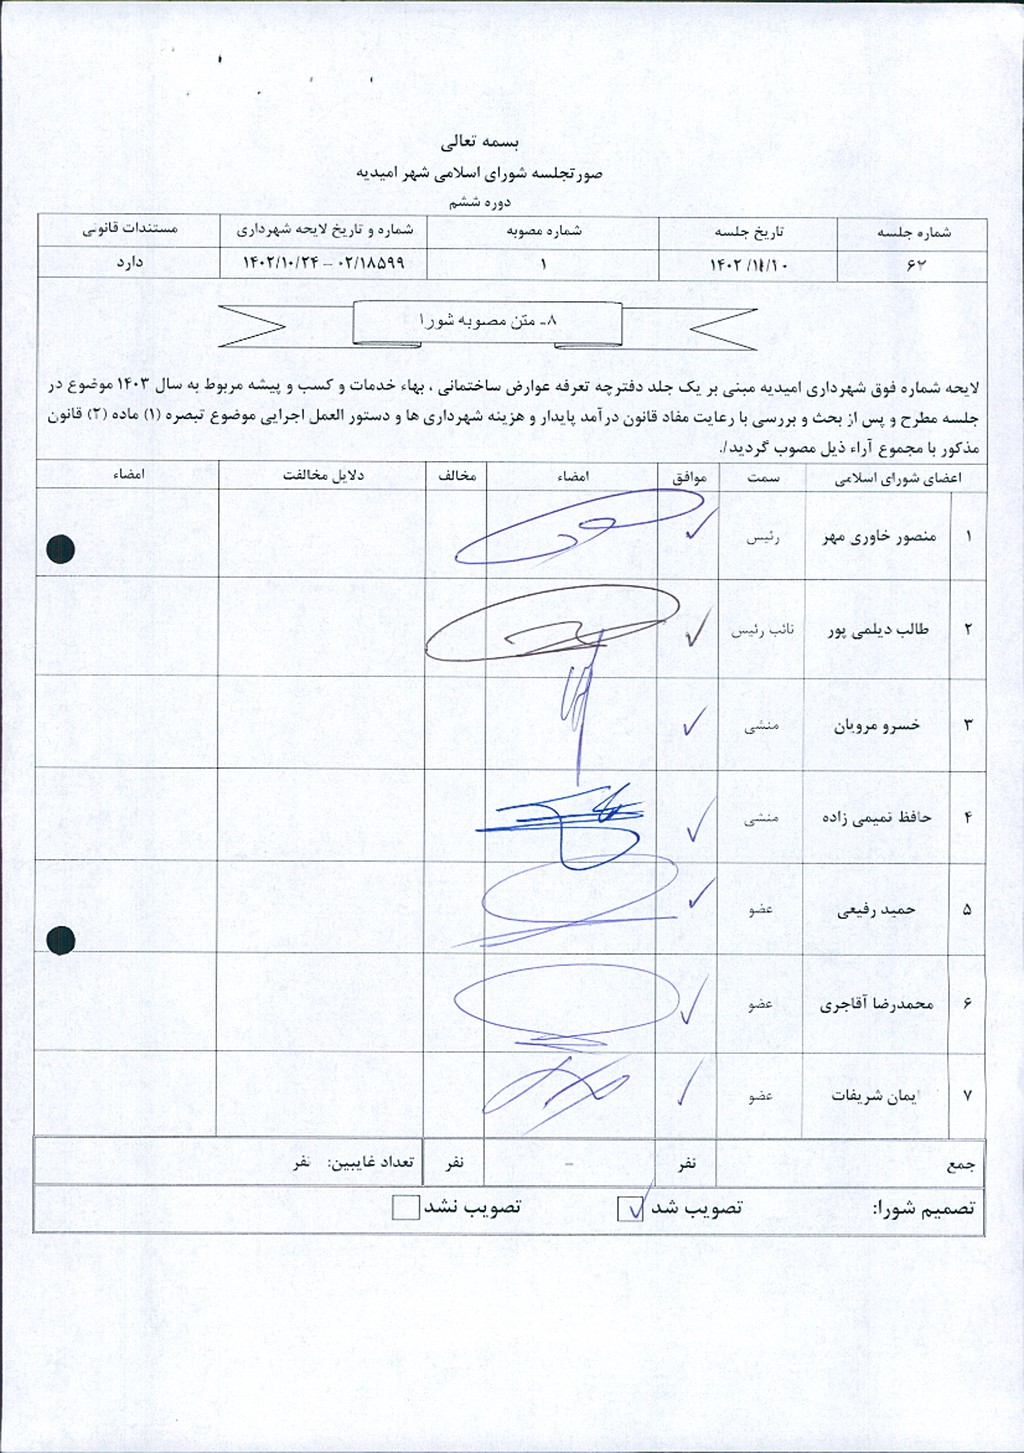 بسمه تعالی
صورتجلسه شورای اسلامی شهر امیدیه
دوره ششم
شماره جلسه تاریخ جلسه شماره مصوبه شماره و تاریخ لایحه شهرداری مستندات قانونی
۶۲ ۱۴۰۲/۱۱/۱۰ ۱ ۰۲/۱۸۵۹۹ – ۱۴۰۲/۱۰/۲۴ دارد
۸- متن مصوبه شورا
لایحه شماره فوق شهرداری امیدیه مبنی بر یک جلد دفترچه تعرفه عوارض ساختمانی ، بهاء خدمات و کسب و پیشه مربوط به سال ۱۴۰۳ موضوع در
جلسه مطرح و پس از بحث و بررسی با رعایت مفاد قانون درآمد پایدار و هزینه شهرداری ها و دستور العمل اجرایی موضوع تبصره (۱) ماده (۲) قانون
مذکور با مجموع آراء ذیل مصوب گردید/.
اعضای شورای اسلامی سمت موافق امضاء مخالف دلایل مخالفت امضاء
۱ منصور خاوری مهر رئیس
۲ طالب دیلمی پور نائب رئیس
۳ خسرو مرویان منشی
۴ حافظ تمیمی زاده منشی
۵ حمید رفیعی عضو
۶ محمدرضا آقاجری عضو
۷ یمان شریفات عضو
جمع نفر - نفر تعداد غایبین: نفر
تصمیم شورا: تصویب شد تصویب نشد